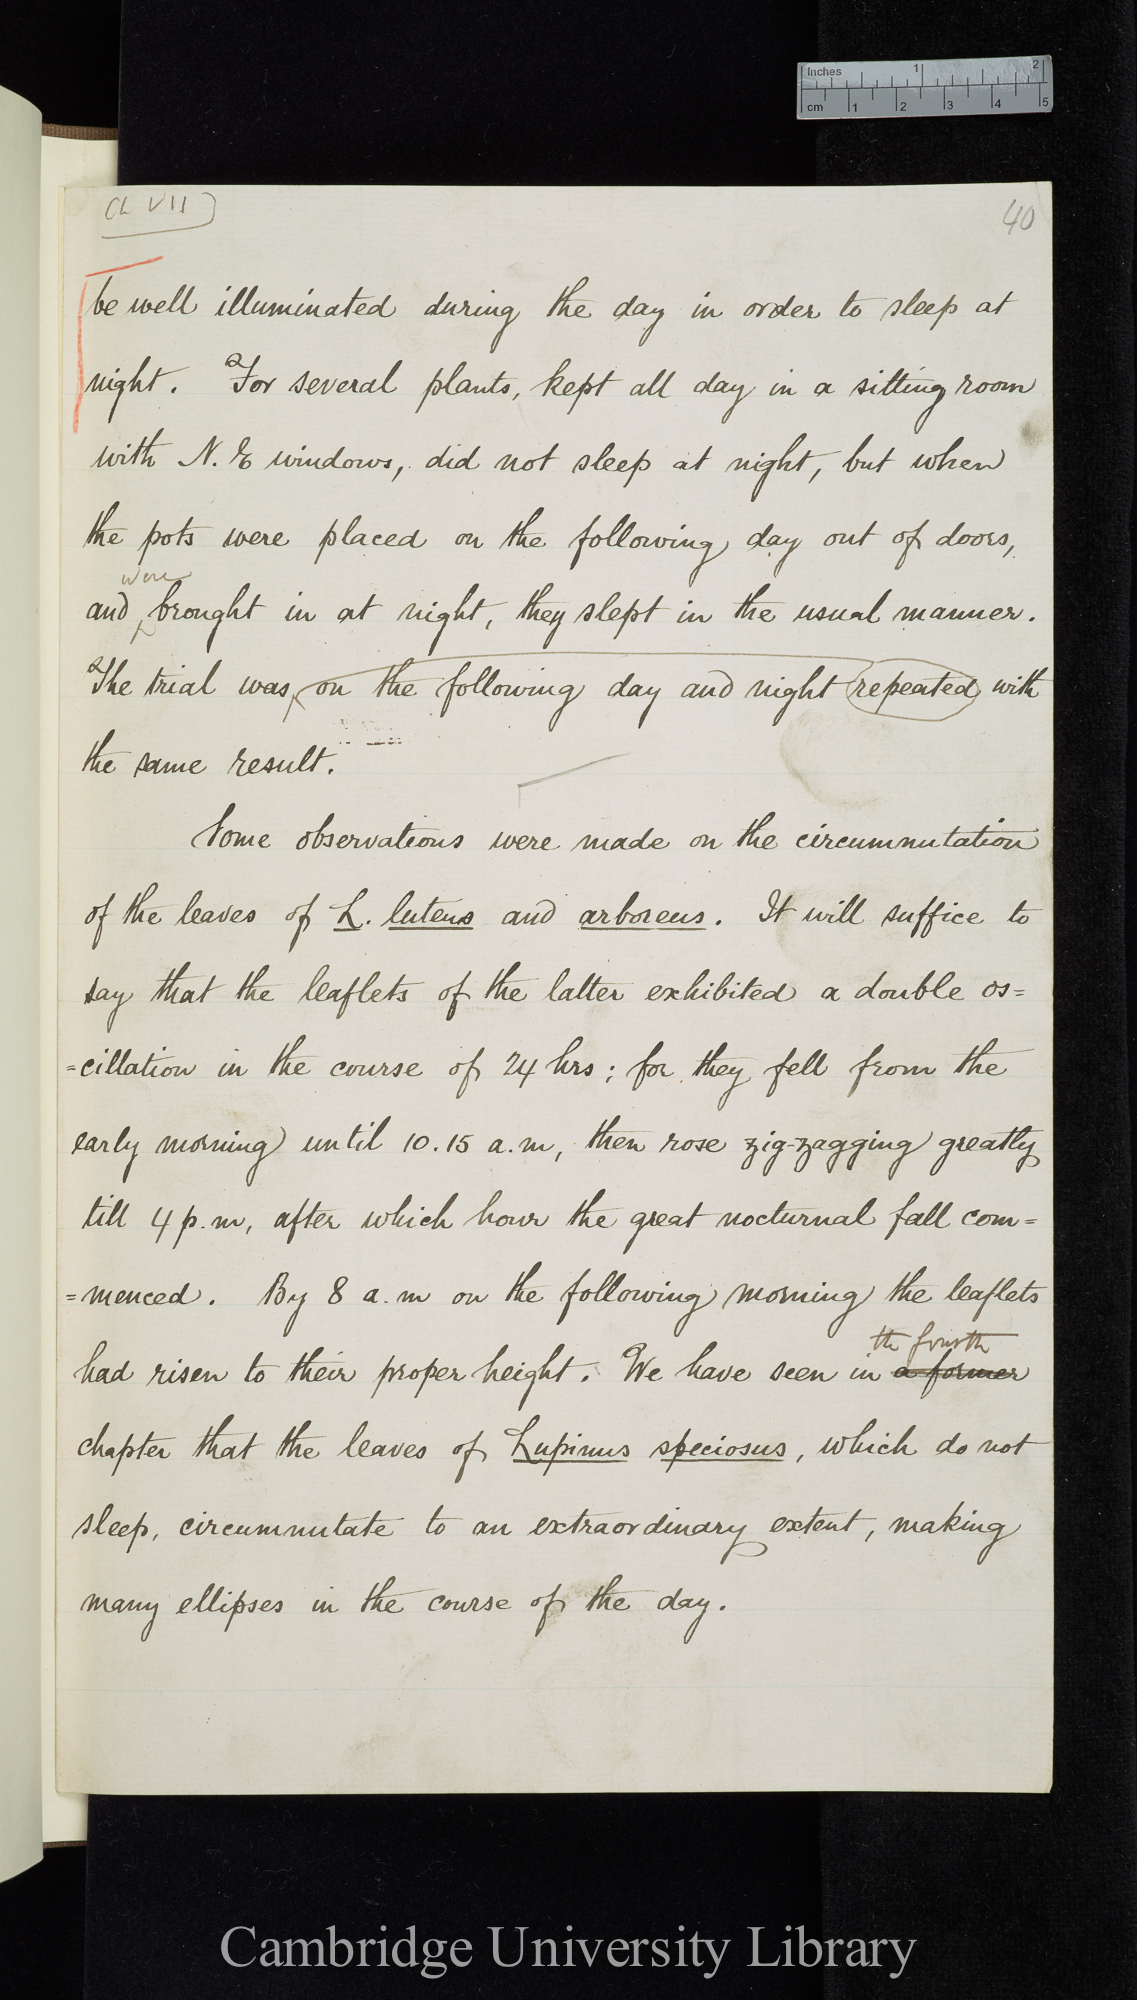 Inches 1 2
cm 1 2 3 4 5
Ch VII)
40
be well illuminated during the day in order to sleep at
night. For several plants, kept all day in a sitting room
with N. E windows, did not sleep at night, but when
the pots were placed on the following day out of doors,
were
and brought in at night, they slept in the usual manner.
The trial was, on the following day and night repeated with
the same result.
Some observations were made on the circumnutation
of the leaves of L. luteus and arboreus. It will suffice to
say that the leaflets of the latter exhibited a double os=
=cillation in the course of 24 hrs; for they fell from the
early morning until 10.15 a.m, then rose zig-zagging greatly
till 4 p.m, after which hour the great nocturnal fall com=
=menced. By 8 a.m on the following morning the leaflets
the fourth
had risen to their proper height. We have seen in a former
chapter that the leaves of Lupinus speciosus, which do not
sleep, circumnutate to an extraordinary extent, making
many ellipses in the course of the day.
Cambridge University Library